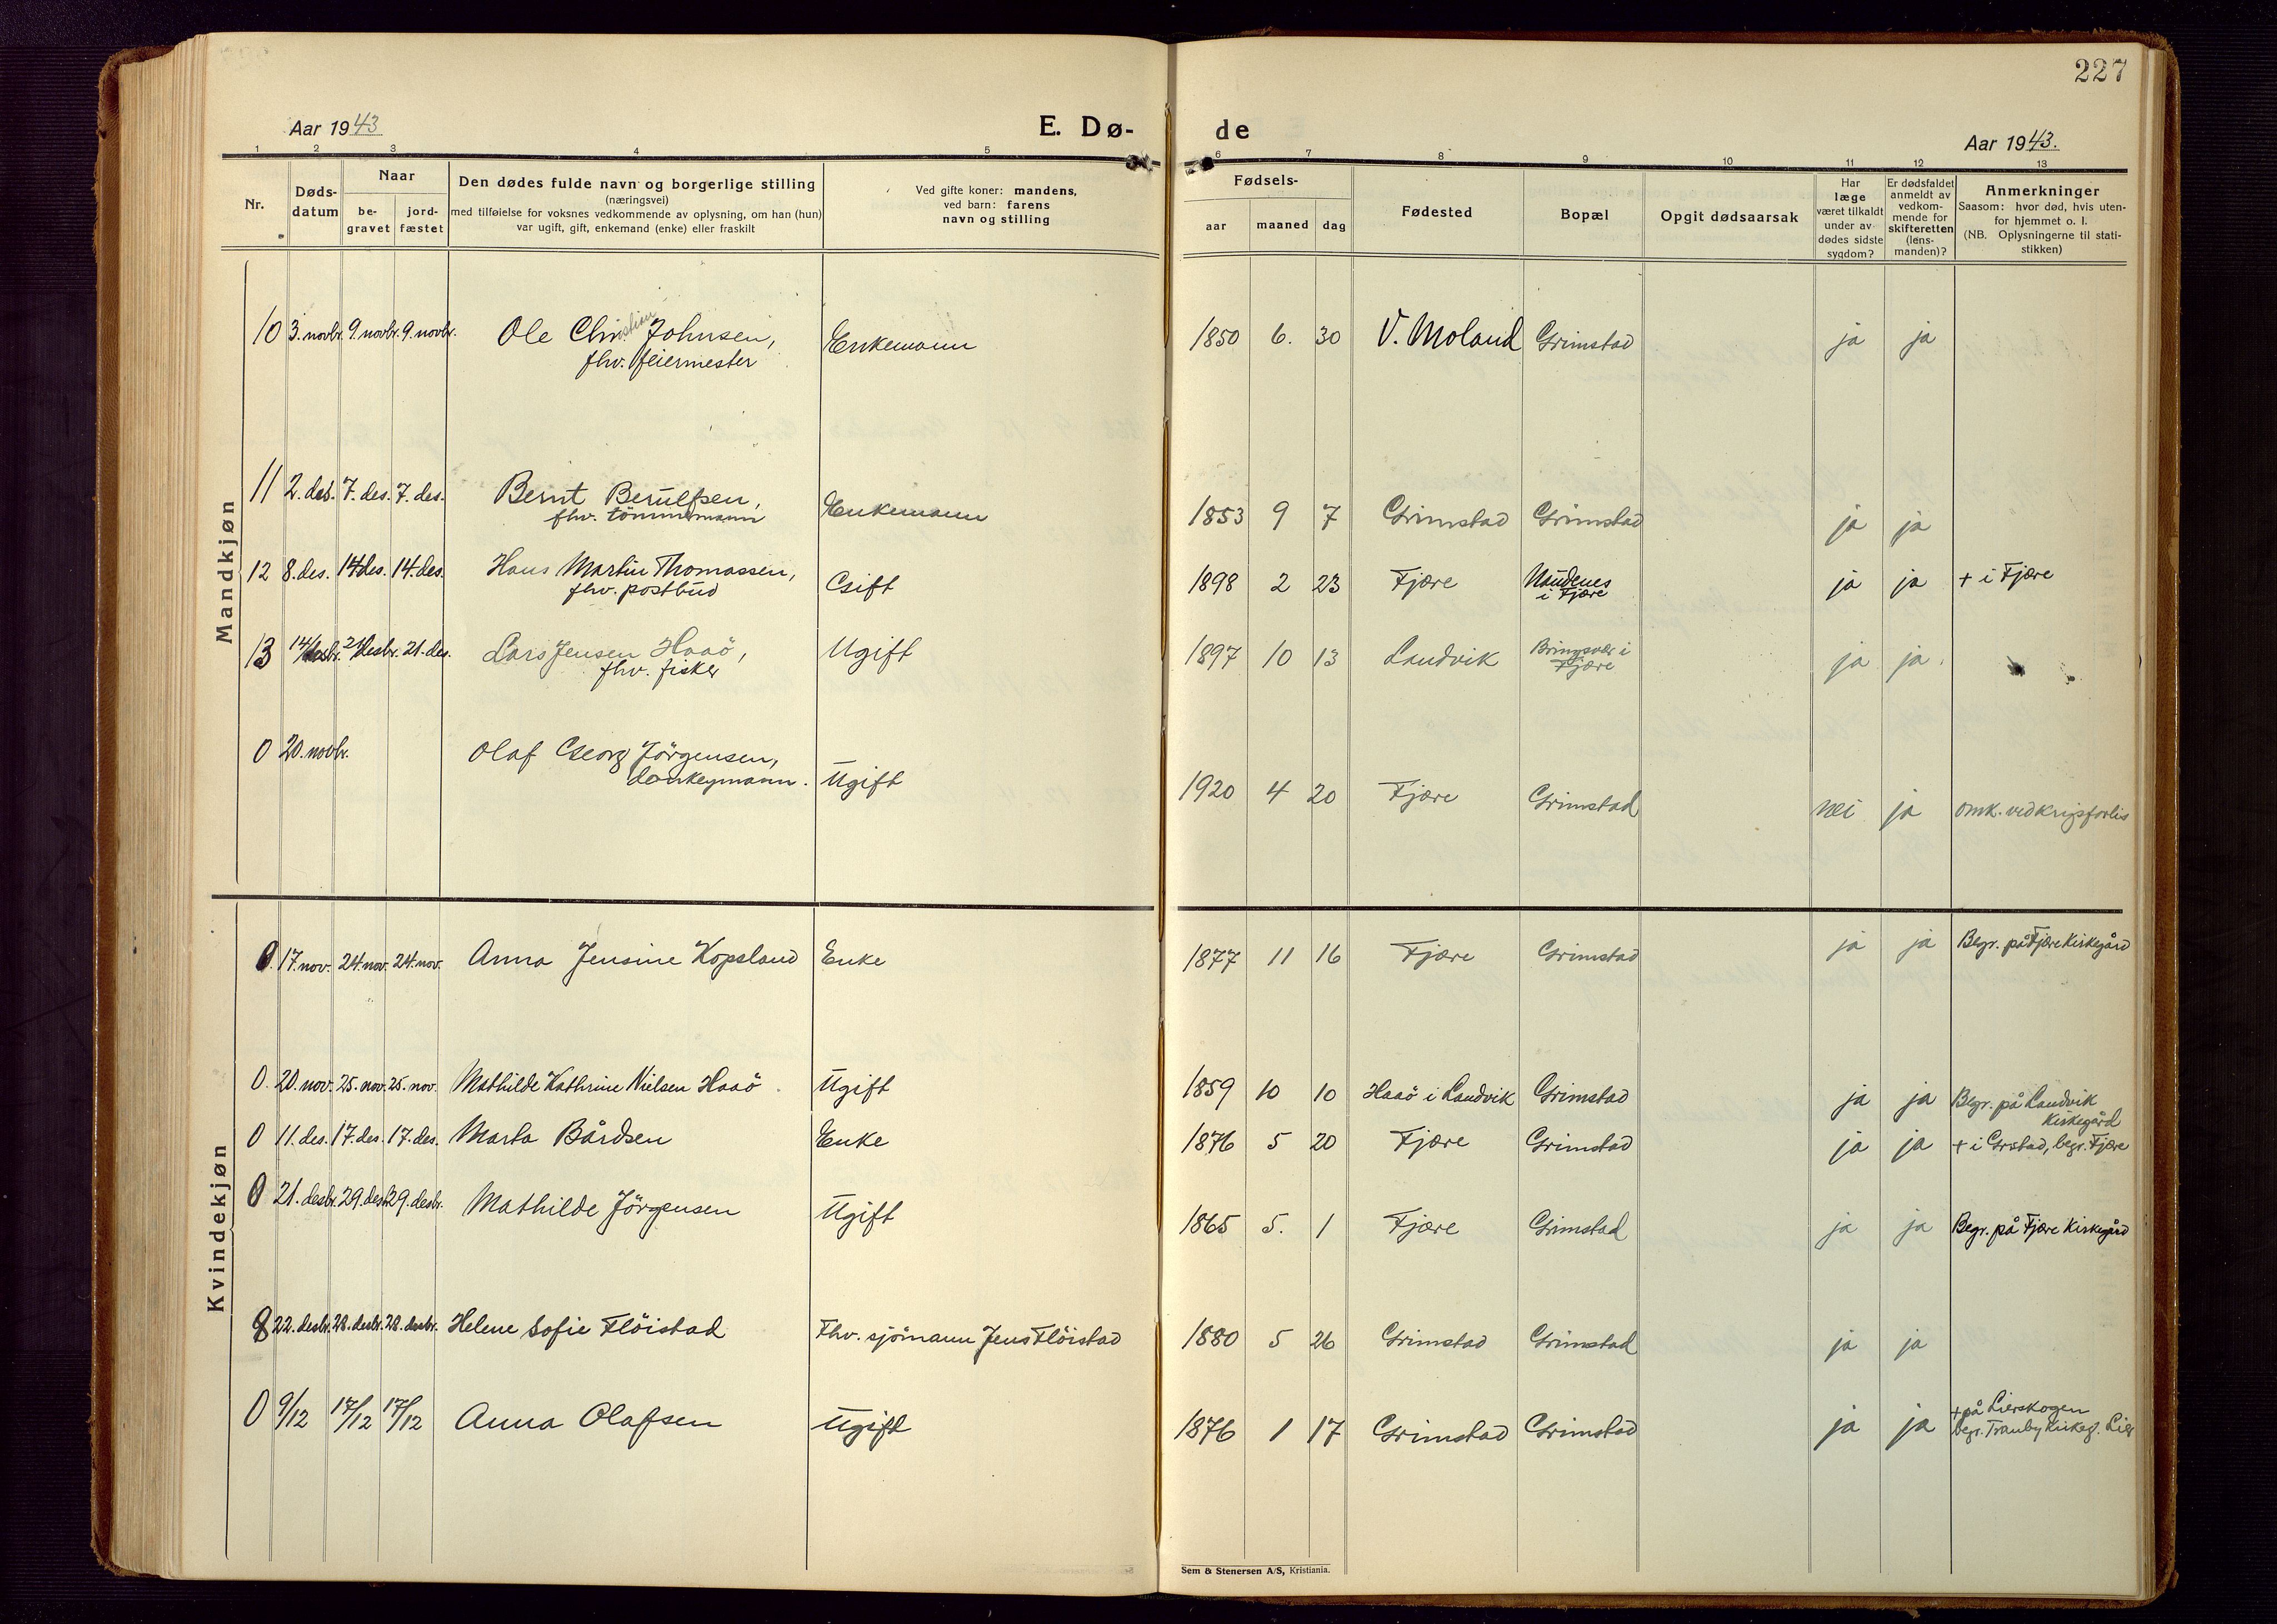 227
Aar 1943
E. Dø-
de
Aar 1943.
1 2 3 4 5 6 7 8 9 10 11 12 13
Nr.
Døds-
datum
Naar
be-
gravet
jord-
fæstet
Den dødes fulde navn og borgerlige stilling
(næringsvei)
med tilføielse for voksnes vedkommende av oplysning, om han (hun)
var ugift, gift, enkemand (enke) eller fraskilt
Ved gifte koner: mandens,
ved barn: farens
navn og stilling
Fødsels-
aar maaned dag
Fødested
Bopæl
Opgit dødsaarsak
Har
læge
været tilkaldt
under av
dødes sidste
sygdom?
Er dødsfaldet
anmeldt av
vedkom-
mende for
skifteretten
(lens-
manden)?
Anmerkninger
Saasom: hvor død, hvis uten-
for hjemmet o. l.
(NB. Oplysningerne til stati-
stikken)
Mandkjøn
10 3. novbr. 9. novbr. 9. novbr. Ole Christian Johnsen, Enkemann 1850 6. 30 V. Moland Grimstad ja ja
fhv. feiermester
11 2. des. 7. des. 7. des. Bernt Berulfsen, Enkemann 1853 9 7 Grimstad Grimstad ja ja
fhv. tömmermann
12 8. des. 14 des. 14. des. Hans Martin Thomassen, Gift 1898 2 23 Fjære Naudenes ja ja + i Fjære
fhv. postbud i Fjære
13 14/desbr. 21/desbr. 21. des. Lars Jensen Haaö, Ugift 1897 10 13 Landvik Bringsvær i ja ja
fhv. fisker Fjære
0 20. novbr. Olaf Georg Jörgensen, Ugift 1920 4 20 Fjære Grimstad nei ja omk. ved krigsforlis
donkeymann.
Kvindekjøn
0. 17. nov. 24. nov. 24. nov. Anna Jensine Kopsland Enke 1877 11 16 Fjære Grimstad ja ja Begr. på Fjære Kirkegård
0. 20. nov. 25. nov. 25. nov. Mathilde Kathrine Nielsen Haaö Ugift 1859 10 10 Haaö i Landvik Grimstad ja ja Begr. på Landvik
Kirkegård
0 11. des. 17. des. 17. des. Marta Bårdsen Enke 1876 5 20 Fjære Grimstad ja ja + i Grstad, begr. Fjære
0 21. desbr. 29. desbr. 29. desbr. Mathilde Jörgensen Ugift 1865 5. 1 Fjære Grimstad ja ja Begr. på Fjære Kirkegård
8 22. desbr. 28. desbr. 28. desbr. Helene Sofie Flöistad Fhv. sjömann Jens Flöistad 1880 5 26 Grimstad Grimstad ja ja
0 9/12 17/12 17/12 Anna Olafsen Ugift 1876 1 17 Grimstad Grimstad ja ja + på Lierskogen
begr. Tranby Kirkeg. Lier
Sem & Stenersen A/S, Kristiania.